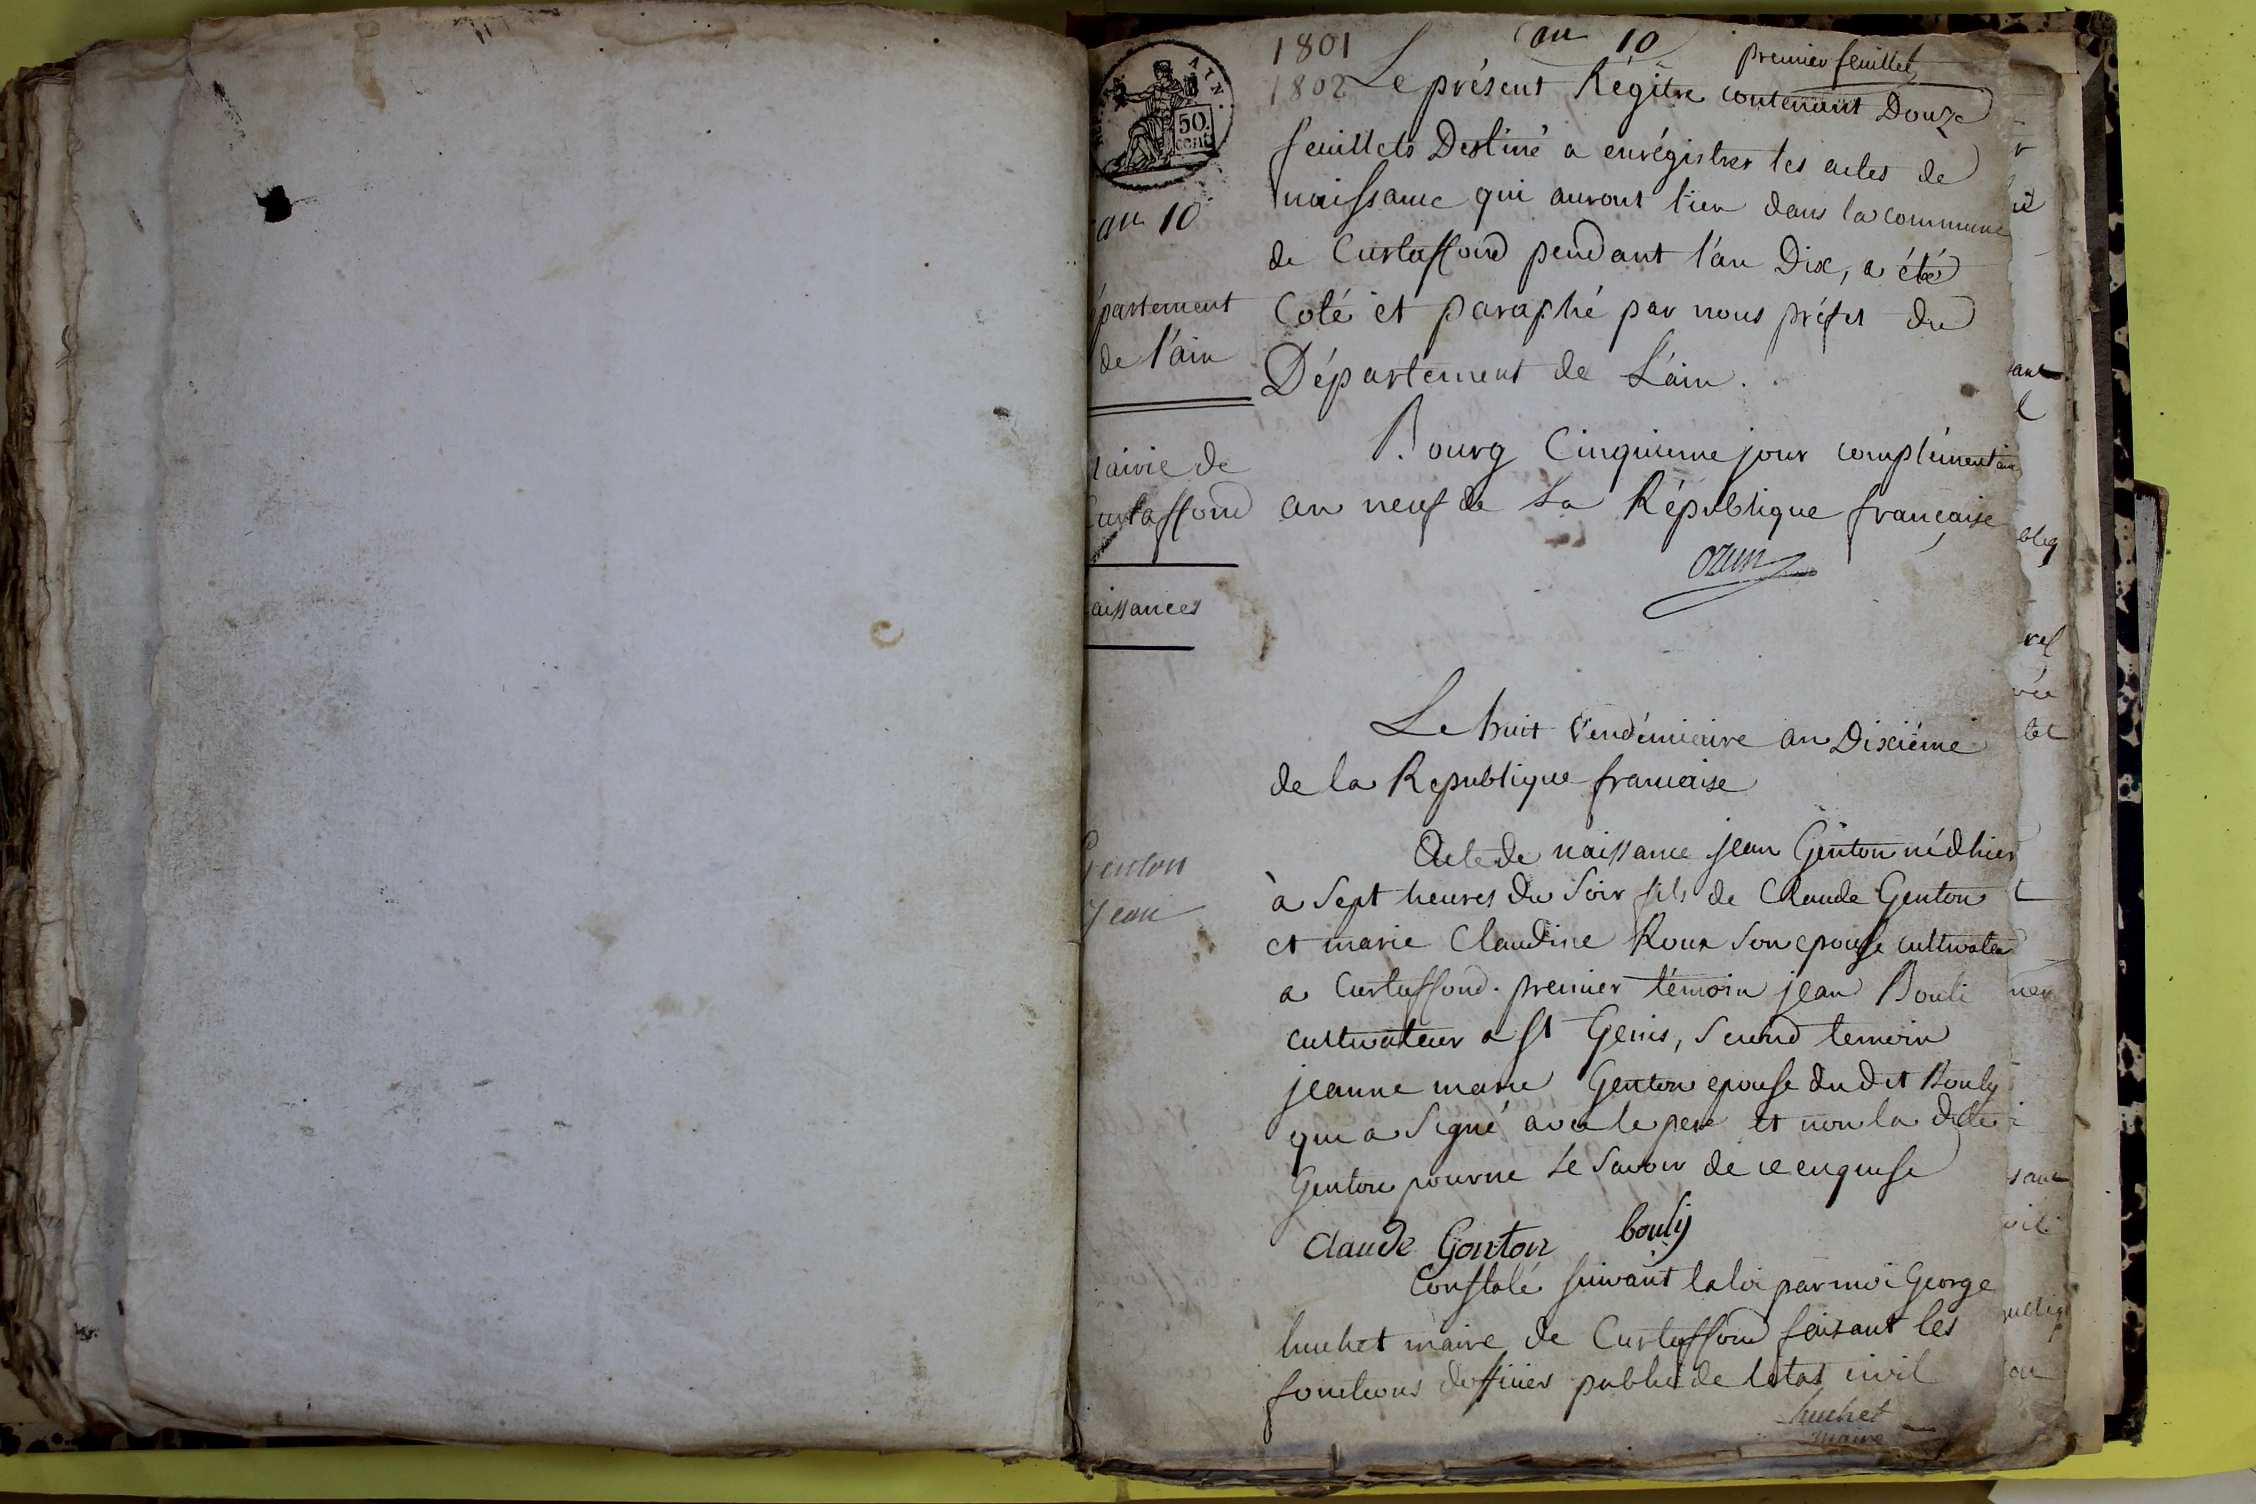 1801
1802
an 10
premier feuillet
AIN.
50.
cent
an 10
épartement
de l'ain
airie de
Curtaffond
aissances
Le présent Régitre contenant Douze
feuillets Destiné a enrégistrer les actes de
naissance qui auront lieu dans la commune
de Curtaffond pendant l'an Dix, a été
Coté et paraphé par nous préfet du
Département de L'ain.
Bourg Cinquieme jour complémentaire
an neuf de La République française
ozun
Le huit Vendémiaire an Dixiéme
de la Republique francaise
Genton
Jean
Acte de naissance jean Genton né dhier
à Sept heures du Soir fils de Claude Genton
et marie Claudine Roux Son epouse cultivateur
a Curtaffond. premier témoin jean Bouli
cultivateur a St Genis, Second temoin
jeanne marie Genton epouse du dit Bouly
qui a Signé avec le pere et non la dite
Genton pour ne Le Savoir de ce enquise
Claude Gonton bouly
Constaté suivant la loi par moi George
huchet maire de Curtaffond faisant les
fonctions dofficier public de letat civil
huchet
maire